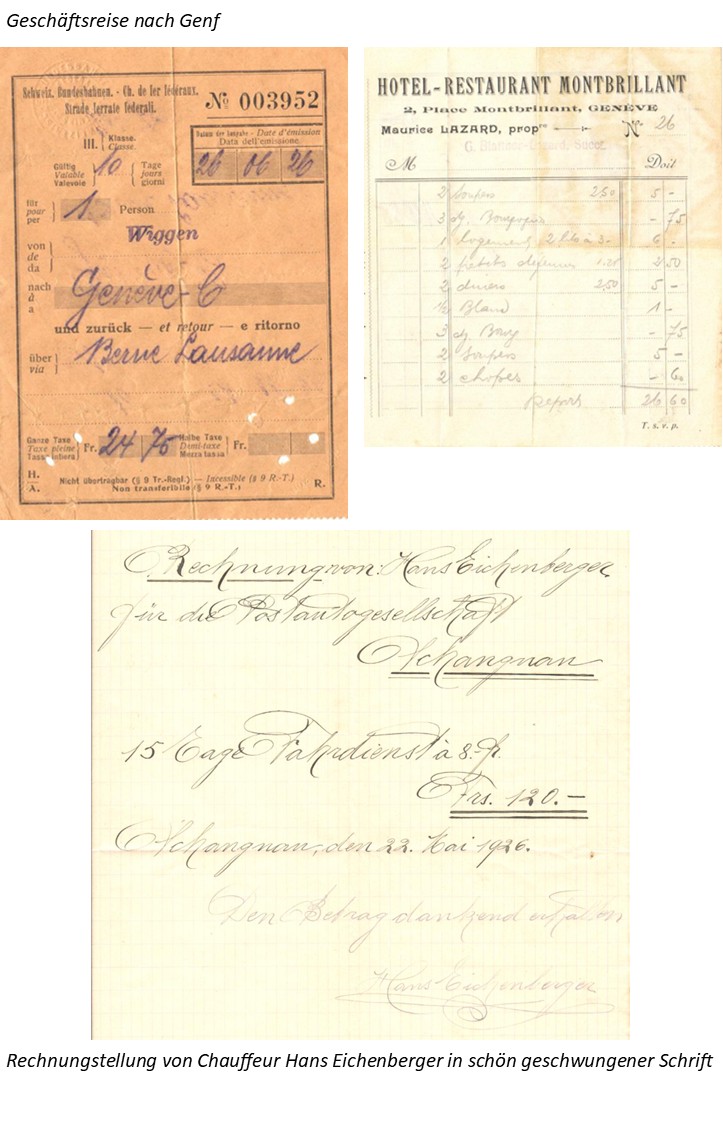 Geschäftsreise nach Genf
Schweiz. Bundesbahnen. - Ch. de fer fédéraux.
Strade ferrate federali.
№ 003952
III. Klasse. Classe.
Datum der Ausgabe - Date d'émission
Data dell'emissione.
26 06 26
Gültig Valable Valevole 10 Tage jours giorni
für pour per 1 Person
Wiggen
von de da
nach à a Genève-C
und zurück — et retour — e ritorno
über via Berne Lausanne
Ganze Taxe Taxe pleine Tassa intiera Fr. 24 75 Halbe Taxe Demi-taxe Mezza tassa Fr.
H. Nicht übertragbar (§ 9 Tr.-Regl.) — Incessible (§ 9 R.-T.)
A. Non transferibile (§ 9 R.-T.) R.
HOTEL-RESTAURANT MONTBRILLANT
2, Place Montbrillant, GENÈVE
Maurice LAZARD, propre № 26
Succr.
M Doit
2 soupers 2,50 5 -
3 - 75
1 logement, 2 lits à 3.- 6 -
2 2 50
2 diners 2,50 5 -
½ Blanc 1 -
3 - 75
2 soupers 5 -
2 chopes - 60
Report 26 60
T. s. v. p.
Rechnung von: Hans Eichenberger,
für die Postautogesellschaft
Schangnau
15 Tage Fahrdienst à 8.- fr.
Frs. 120.—
Schangnau, den 22. Mai 1926.
Den Betrag dankend erhalten
Hans Eichenberger
Rechnungstellung von Chauffeur Hans Eichenberger in schön geschwungener Schrift